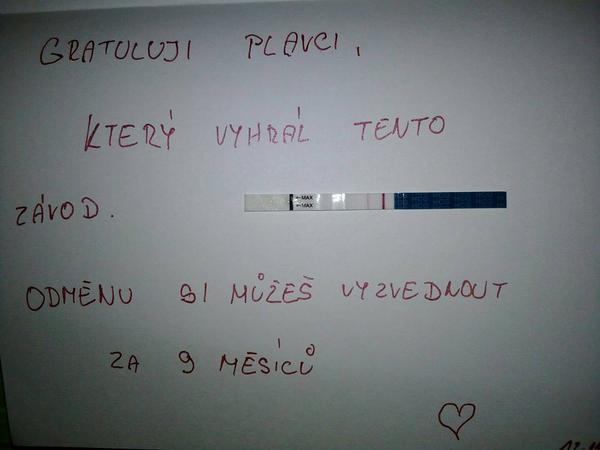 GRATULUJI PLAVCI,
KTERÝ VYHRÁL TENTO
ZÁVOD.
←MAX
←MAX
ODMĚNU SI MŮŽEŠ VYZVEDNOUT
ZA 9 MĚSÍCŮ